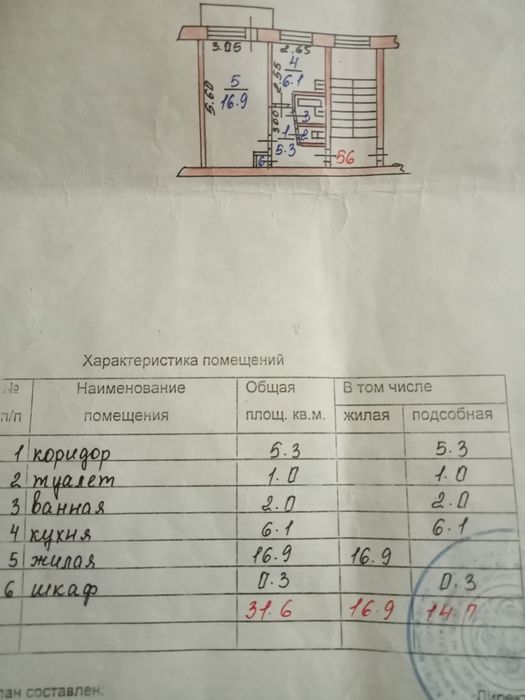 3.05
2.65
5.60
2.55
4
6.1
5
16.9
3.00
3
1
2
5.3
6
56
Характеристика помещений
№ Наименование Общая В том числе
п/п помещения площ. кв.м. жилая подсобная
1 коридор 5.3 5.3
2 туалет 1.0 1.0
3 ванная 2.0 2.0
4 кухня 6.1 6.1
5 жилая 16.9 16.9
6 шкаф 0.3 0.3
31.6 16.9 14.7
лан составлен.